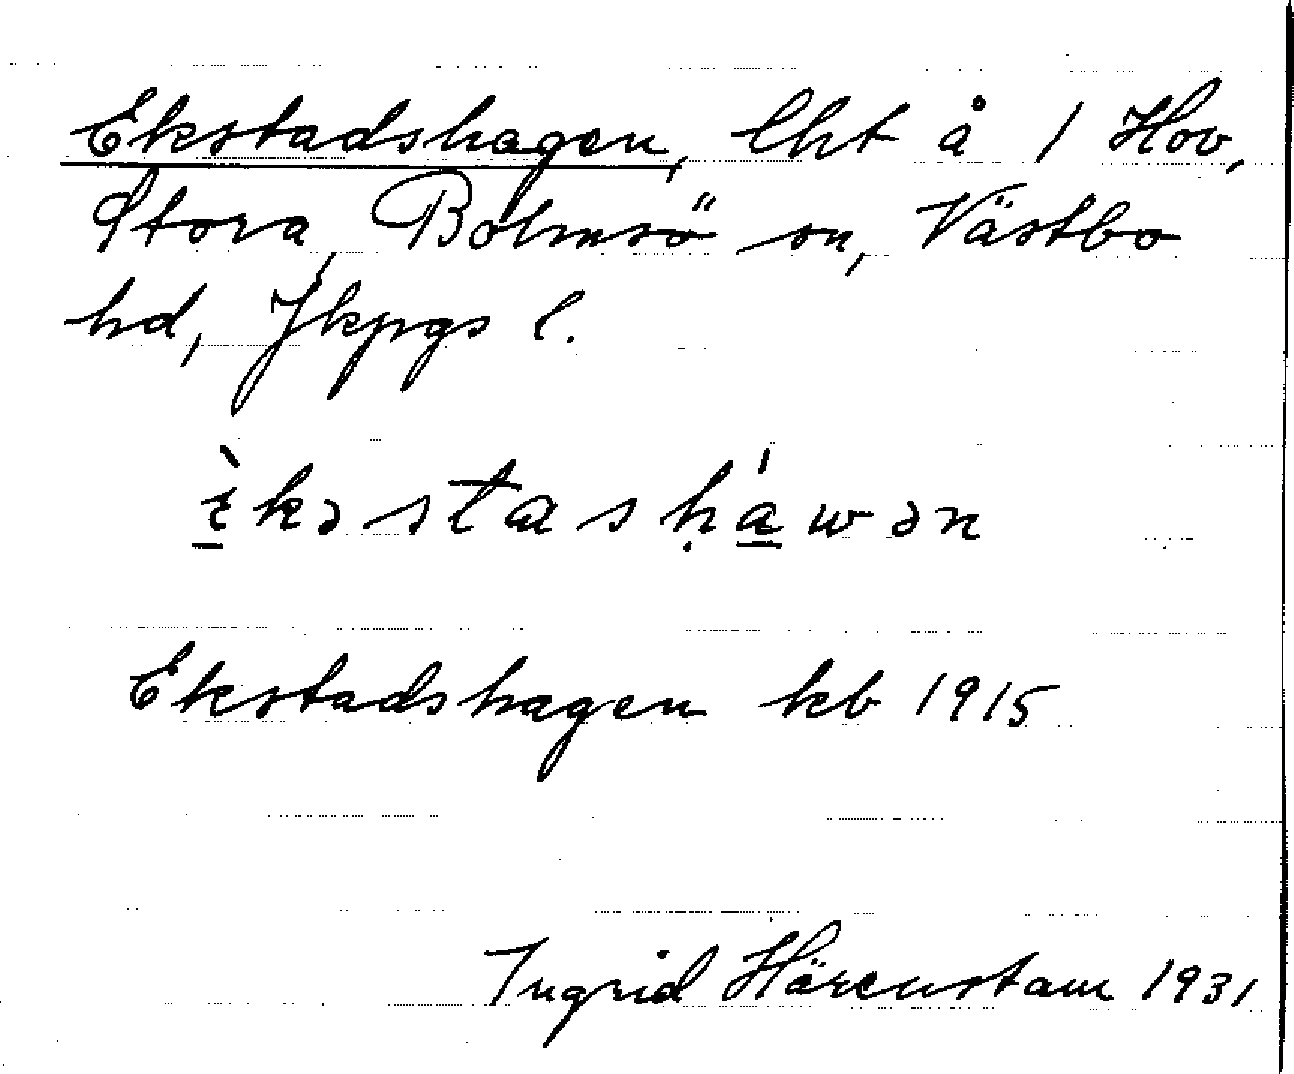 Ekstadshagen, lht å 1 Hov,
Stora Bolmsö sn, Västbo
hd, Jkpgs l.
ὲkəstasḥáwən
Ekstadshagen kb 1915
Ingrid Härenstam 1931